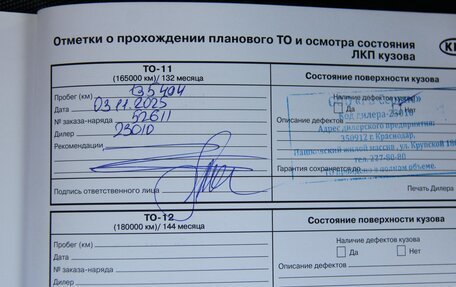 Отметки о прохождении планового ТО и осмотра состояния
ЛКП кузова
ТО-11
(165000 км)/ 132 месяца
Состояние поверхности кузова
Пробег (км) 135494
Дата 03.11.2025
№ заказа-наряда 52611
Дилер 23010
Рекомендации
Подпись ответственного лица
Наличие дефектов кузова
Да Нет
Описание дефектов
Код дилера-23010
Адрес дилерского предприятия:
350912 г. Краснодар,
Пашковский жилой массив, ул. Крупской
тел. 227-80-80
Гарантия сохраняется
в полном объеме.
Печать Дилера
ТО-12
(180000 км)/ 144 месяца
Состояние поверхности кузова
Пробег (км)
Дата
№ заказа-наряда
Дилер
Наличие дефектов кузова
Да Нет
Описание дефектов